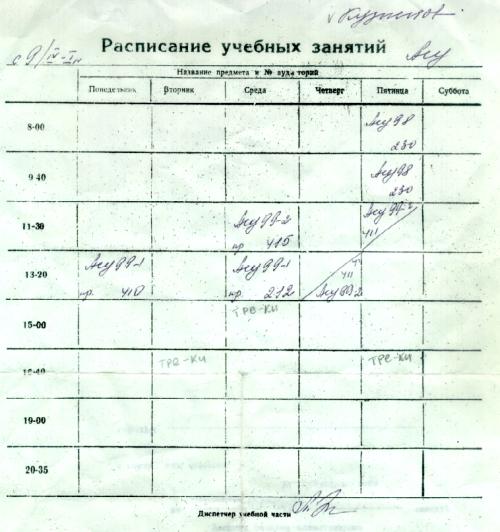 Кузнецов
с 9/IV
Расписание учебных занятий
Асу
Название предмета и № аудиторий
Понедельник Вторник Среда Четверг Пятница Суббота
8-00 Асу 98
230
9-40 Асу 98
230
11-30 Асу 99-2 Асу 99-2
пр. 415 411
13-20 Асу 99-1 Асу 99-1
411
пр. 410 пр. 212 Асу 99-2
ТРЕ-КИ
15-00
ТРЕ-КИ ТРЕ-КИ
16-40
19-00
20-35
Диспетчер учебной части